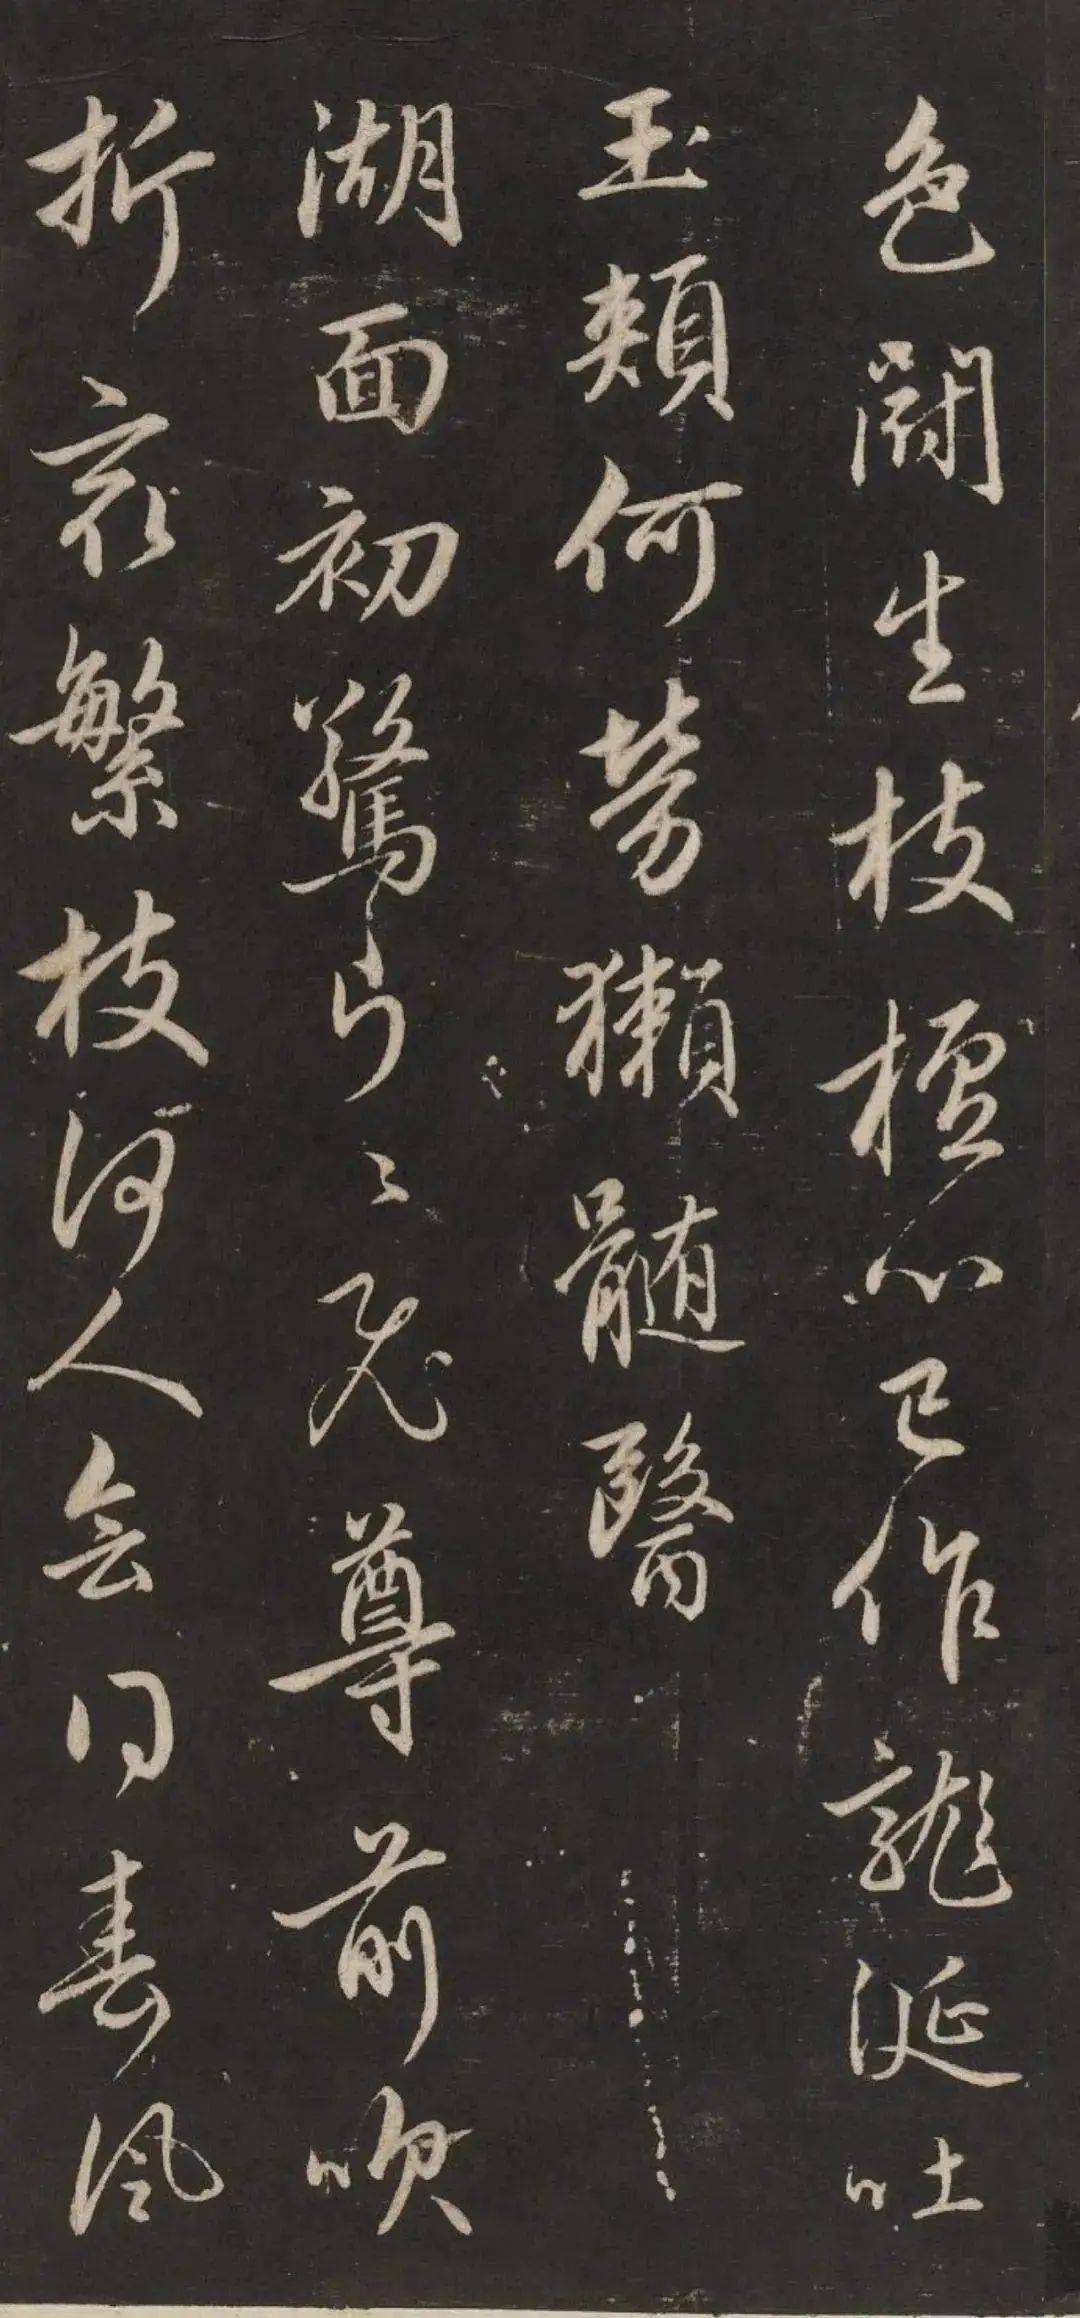 色鬭生枝檀心已作龍涎吐
玉頰何勞獺髓醫
湖面初驚片々飛尊前吹
折最繁枝何人會得春風